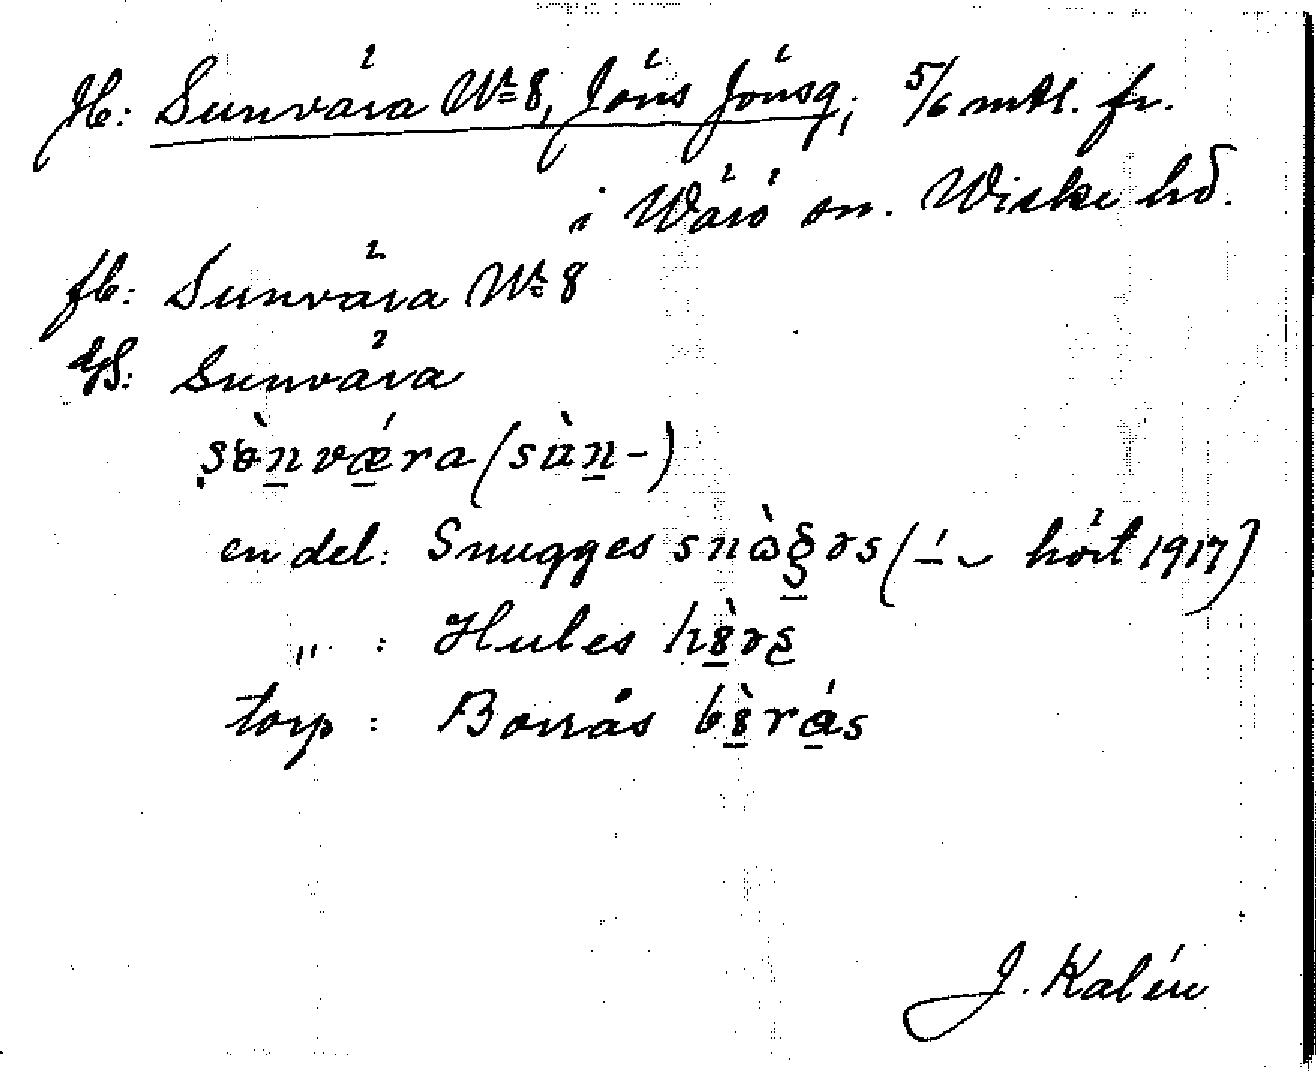 Jb: Sunvära No 8, Jöns Jönsg, 5/6 mtl. fr.
i Wärö sn. Wiske hd.
fb: Sunvära No 8
GS: Sunvära
sɵ̀nvǽra (sùn-)
en del: Snugges snὼgəs (–́ ⌣ hört 1917)
„ : Hules
torp : Borrås
J. Kalén